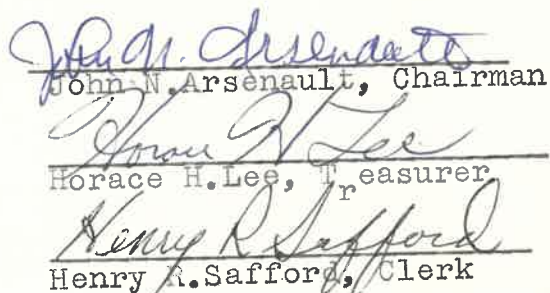 John N. Arsenault
John N.Arsenault, Chairman
Horace H Lee
Horace H.Lee, Treasurer
Henry R Safford
Henry R.Safford, Clerk